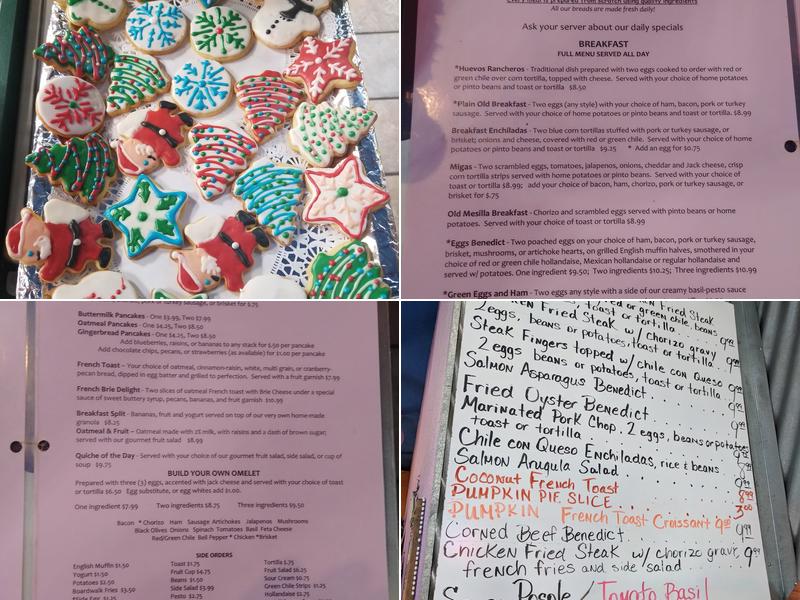 Every meal is prepared from scratch using quality ingredients
All our breads are made fresh daily!
Ask your server about our daily specials
BREAKFAST
FULL MENU SERVED ALL DAY
*Huevos Rancheros - Traditional dish prepared with two eggs cooked to order with red or
green chile over corn tortilla, topped with cheese. Served with your choice of home potatoes
or pinto beans and toast or tortilla $8.50
*Plain Old Breakfast - Two eggs (any style) with your choice of ham, bacon, pork or turkey
sausage. Served with your choice of home potatoes or pinto beans and toast or tortilla. $8.99
Breakfast Enchiladas - Two blue corn tortillas stuffed with pork or turkey sausage, or
brisket; onions and cheese, covered with red or green chile. Served with your choice of home
potatoes or pinto beans and toast or tortilla $9.25 * Add an egg for $0.75
Migas - Two scrambled eggs, tomatoes, jalapenos, onions, cheddar and Jack cheese, crisp
corn tortilla strips served with home potatoes or pinto beans. Served with your choice of
toast or tortilla $8.99; add your choice of bacon, ham, chorizo, pork or turkey sausage, or
brisket for $.75
Old Mesilla Breakfast - Chorizo and scrambled eggs served with pinto beans or home
potatoes, with your choice of toast or tortilla $8.99
*Eggs Benedict - Two poached eggs on your choice of ham, bacon, pork or turkey sausage,
brisket, mushrooms, or artichoke hearts, on grilled English muffin halves, smothered in your
choice of red or green chile hollandaise, Mexican hollandaise or regular hollandaise and
served w/ potatoes. One ingredient $9.50; Two ingredients $10.25; Three ingredients $10.99
*Green Eggs and Ham - Two eggs any style with a side of our creamy basil-pesto sauce
pork or turkey sausage, or brisket for $.75
Buttermilk Pancakes - One $3.99, Two $7.99
Oatmeal Pancakes - One $4.25, Two $8.50
Gingerbread Pancakes - One $4.25, Two $8.50
Add blueberries, raisins, or bananas to any stack for $.50 per pancake
Add chocolate chips, pecans, or strawberries (as available) for $1.00 per pancake
French Toast - Your choice of oatmeal, cinnamon-raisin, white, multi grain, or cranberry-
pecan bread, dipped in egg batter and grilled to perfection. Served with a fruit garnish $7.99
French Brie Delight - Two slices of oatmeal French toast with Brie Cheese under a special
sauce of sweet buttery syrup, pecans, bananas, and fruit garnish $10.99
Breakfast Split - Bananas, fruit and yogurt served on top of our very own home-made
granola $8.25
Oatmeal & Fruit - Oatmeal made with 2% milk, with raisins and a dash of brown sugar;
served with our gourmet fruit salad $8.99
Quiche of the Day - Served with your choice of our gourmet fruit salad, side salad, or cup of
soup $9.75
BUILD YOUR OWN OMELET
Prepared with three (3) eggs, accented with jack cheese and served with your choice of toast
or tortilla $6.50 Egg substitute, or egg whites add $1.00.
One ingredient $7.99 Two ingredients $8.75 Three ingredients $9.50
Bacon * Chorizo Ham Sausage Artichokes Jalapenos Mushrooms
Black Olives Onions Spinach Tomatoes Basil Feta Cheese
Red/Green Chile Bell Pepper * Chicken * Brisket
SIDE ORDERS
English Muffin $1.50 Toast $1.75 Tortilla $.75
Yogurt $1.50 Fruit Cup $4.75 Fruit Salad $6.25
Potatoes $2.50 Beans $1.50 Sour Cream $0.75
Boardwalk Fries $3.50 Side Salad $3.99 Green Chile Strips $1.25
*Side Egg $1.25 Pesto $2.75 Hollandaise $1.75
Fried Steak
2 eggs, toast or tortilla. red or green chile, beans
Fried Steak w/ chorizo gravy
2 eggs, beans or potatoes, toast or tortilla 9.99
Steak Fingers topped w/ chile con Queso
2 eggs beans or potatoes, toast or tortilla 9.99
Salmon Asparagus Benedict 9.99
Fried Oyster Benedict 9.99
Marinated Pork Chop, 2 eggs, beans or potatoes
toast or tortilla
Chile con Queso Enchiladas, rice & beans
Salmon Arugula Salad 9.99
Coconut French Toast 8.99
PUMPKIN PIE SLICE 3.00
PUMPKIN French Toast Croissant 9.99
Corned Beef Benedict 9.99
Chicken Fried Steak w/ chorizo gravy, 9.99
french fries and side salad
Posole / Tomato Basil